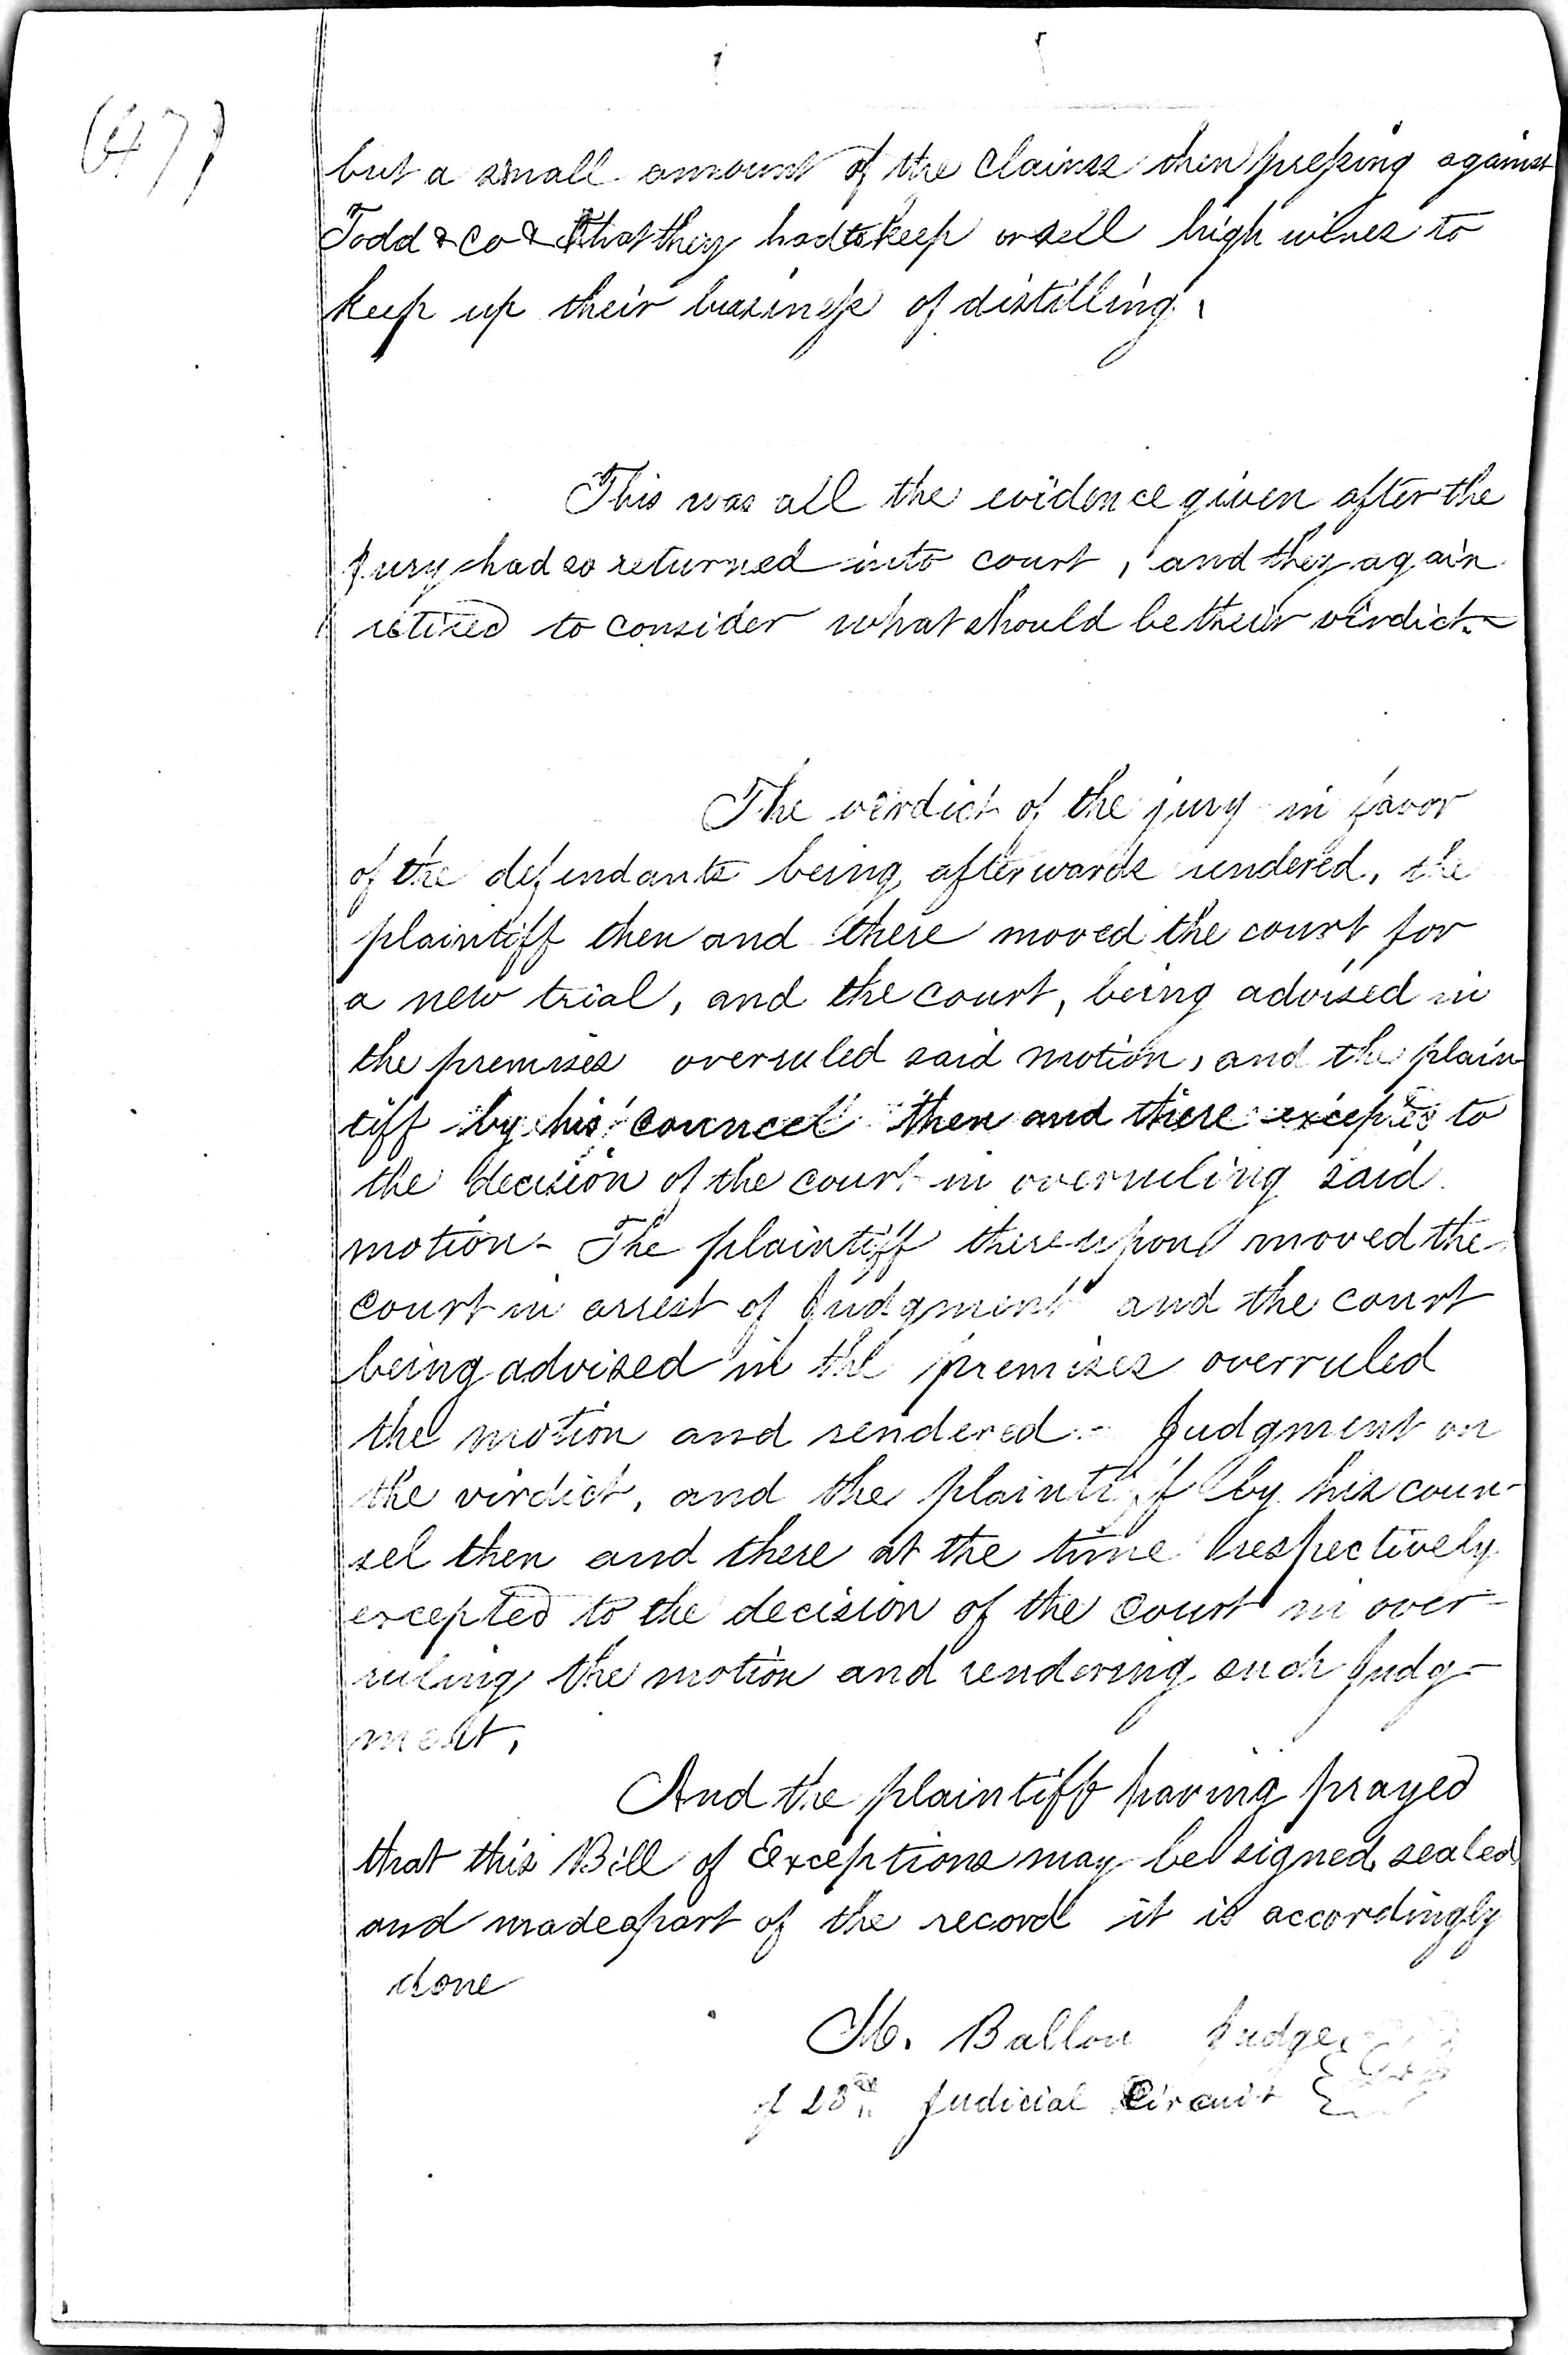 (47)
but a small amount of the claims then pressing against
Todd & Co & that they had to keep or sell high wines to
keep up their business of distilling.
This was all the evidence given after the
Jury had so returned into court, and they again
retired to consider what should be their verdict.
The verdict of the jury in favor
of the defendants being afterwards rendered, the
plaintiff then and there moved the court for
a new trial, and the court, being advised in
the premises overruled said motion, and the plain
tiff by his councel then and there excepted to
the decision of the court in overruling said
motion - The plaintiff thereupon moved the
court in arrest of Judgment and the court
being advised in the premises overruled
the motion and rendered - Judgment on
the virdict, and the plaintiff by his coun-
sel then and there at the time respectively
excepted to the decision of the court in over-
ruling the motion and rendering such Judg-
ment,
And the plaintiff having prayed
that this Bill of Exceptions may be signed, sealed
and made a part of the record it is accordingly
done
M. Ballou Judge
of 23rd Judicial Circuit